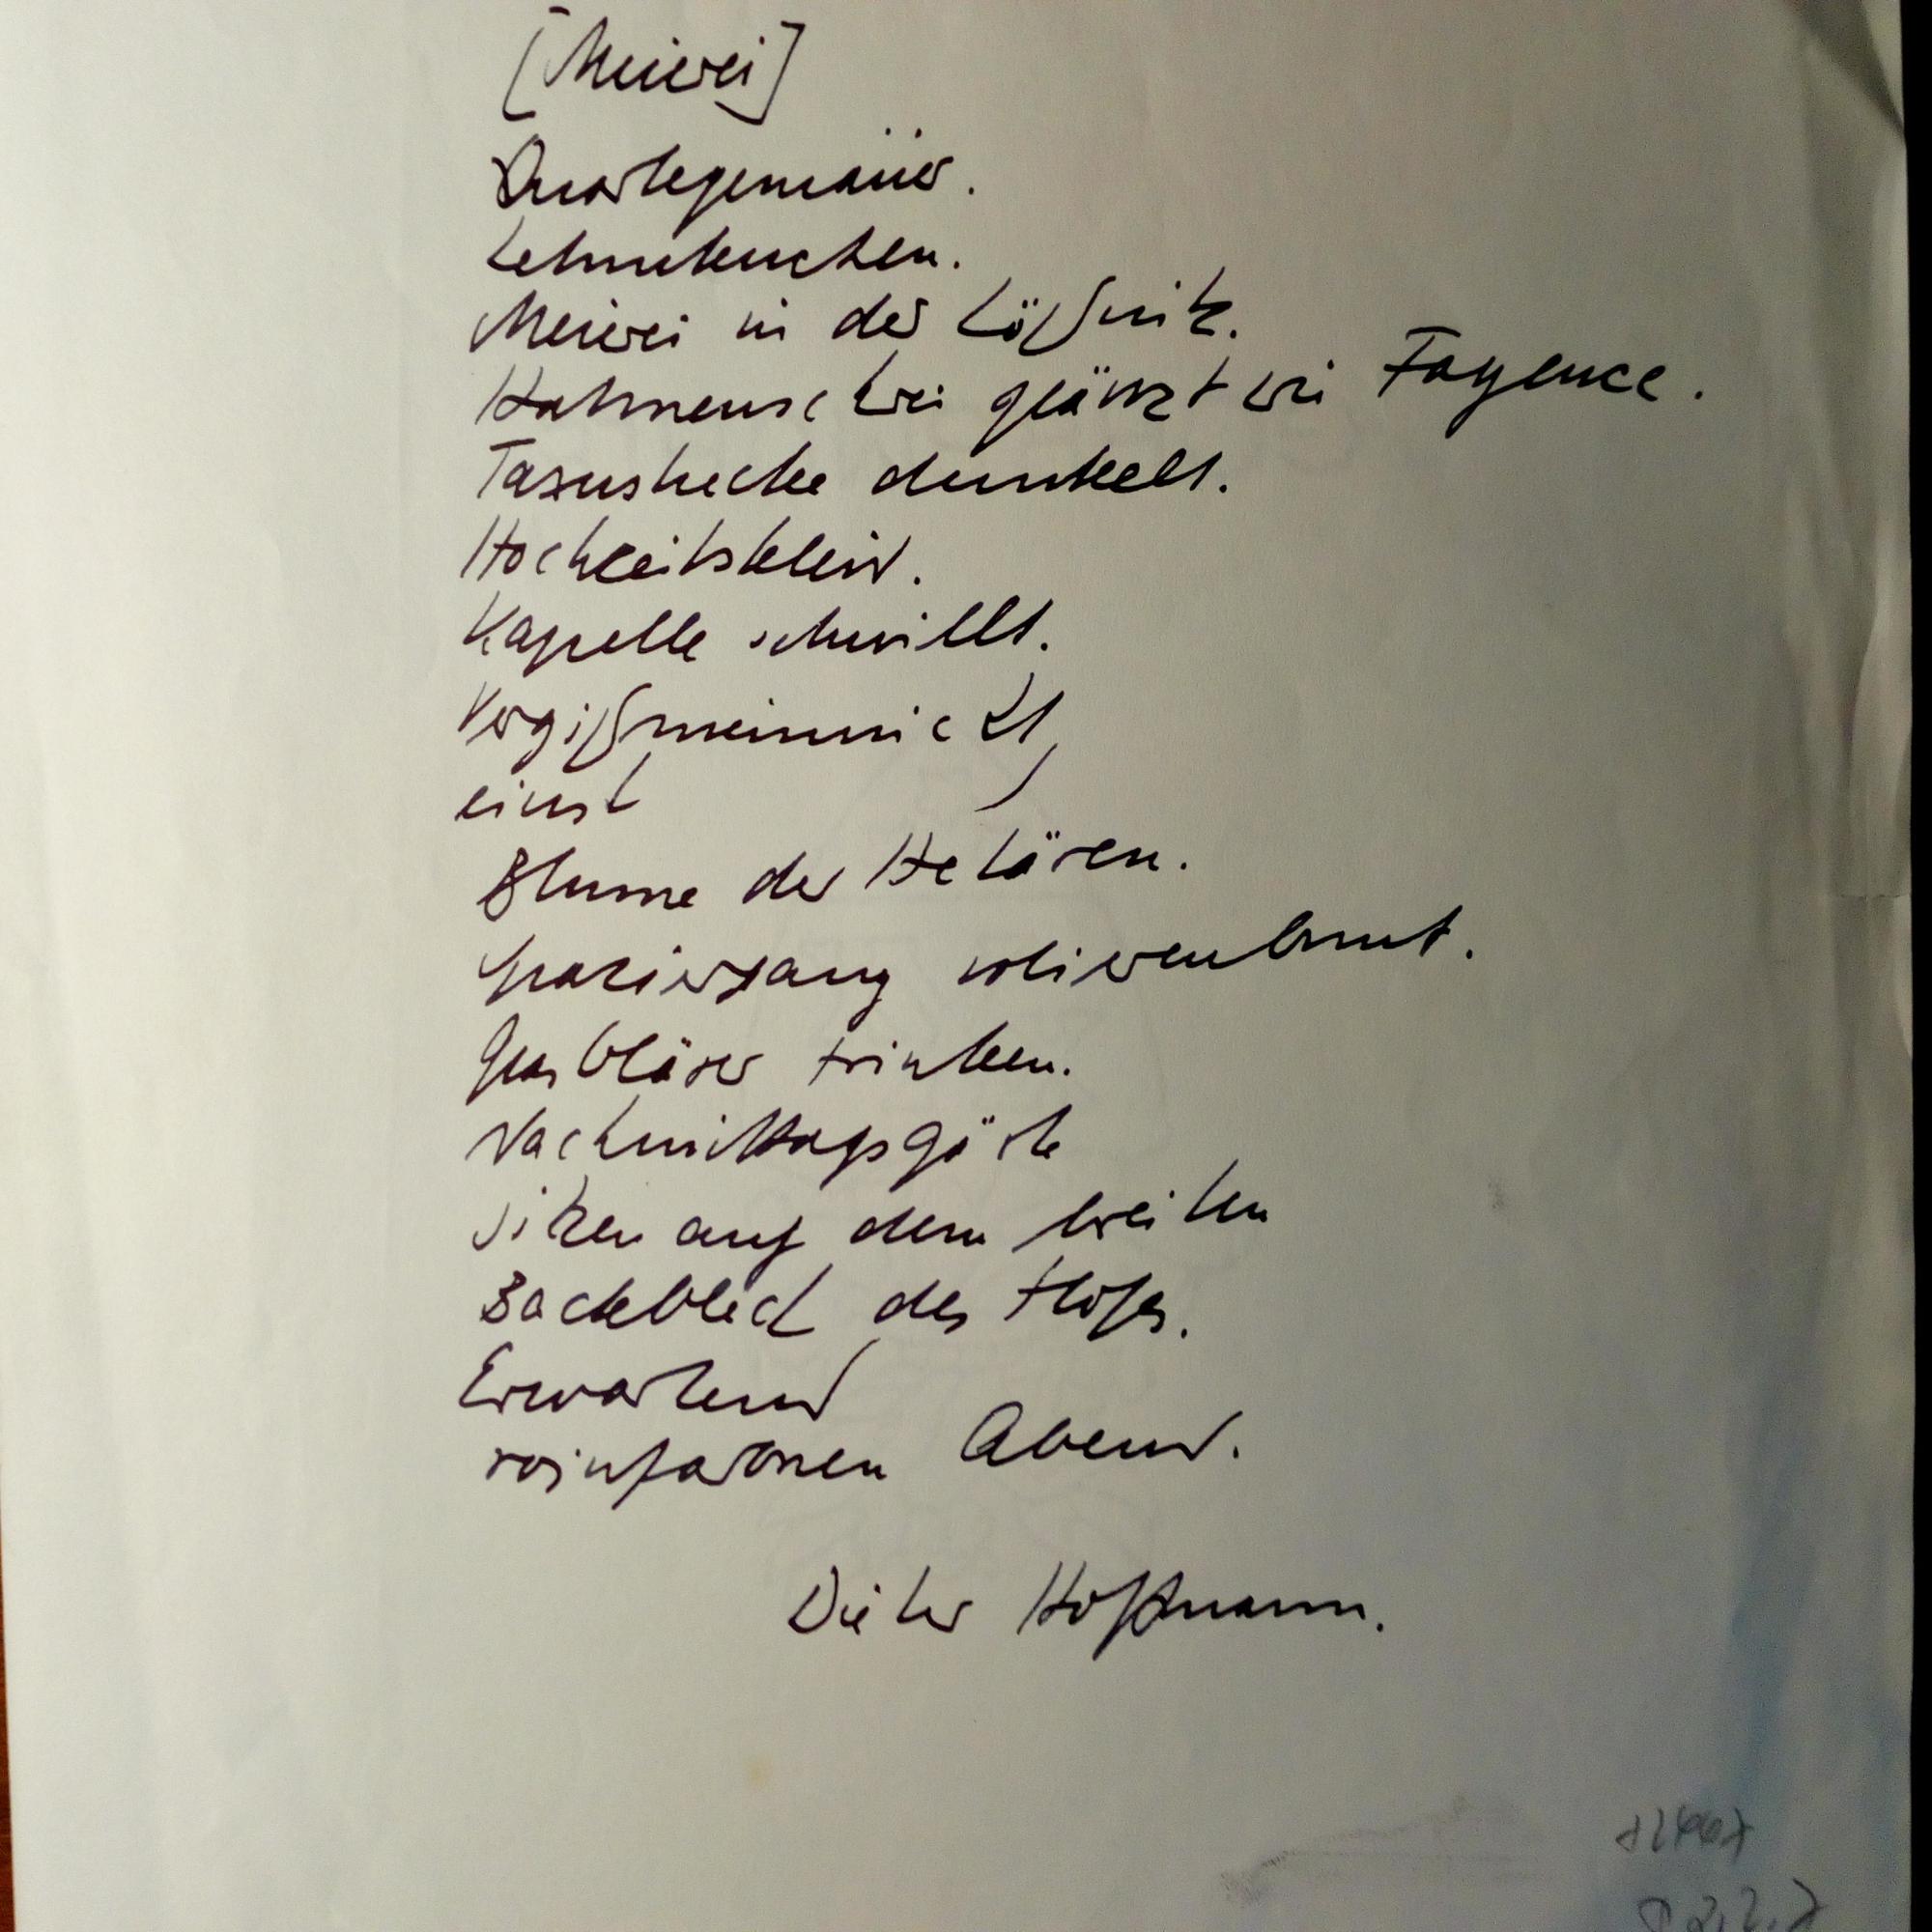 [Meierei]
Quarkgemäuer.
Lehmkuchen.
Meierei in der Lößnitz.
Hahnenschrei glänzt wie Fayence.
Taxushecke dunkelt.
Hochzeitskleid.
Kapelle schwillt.
Vergißmeinnicht,
einst
Blume der Hetären.
Spaziergang volierenbunt.
Glasbläser trinken.
Nachmittagsgäste
sitzen auf dem breiten
Backblech des Hofes.
Erwartend
rainfarnen Abend.
Dieter Hoffmann.